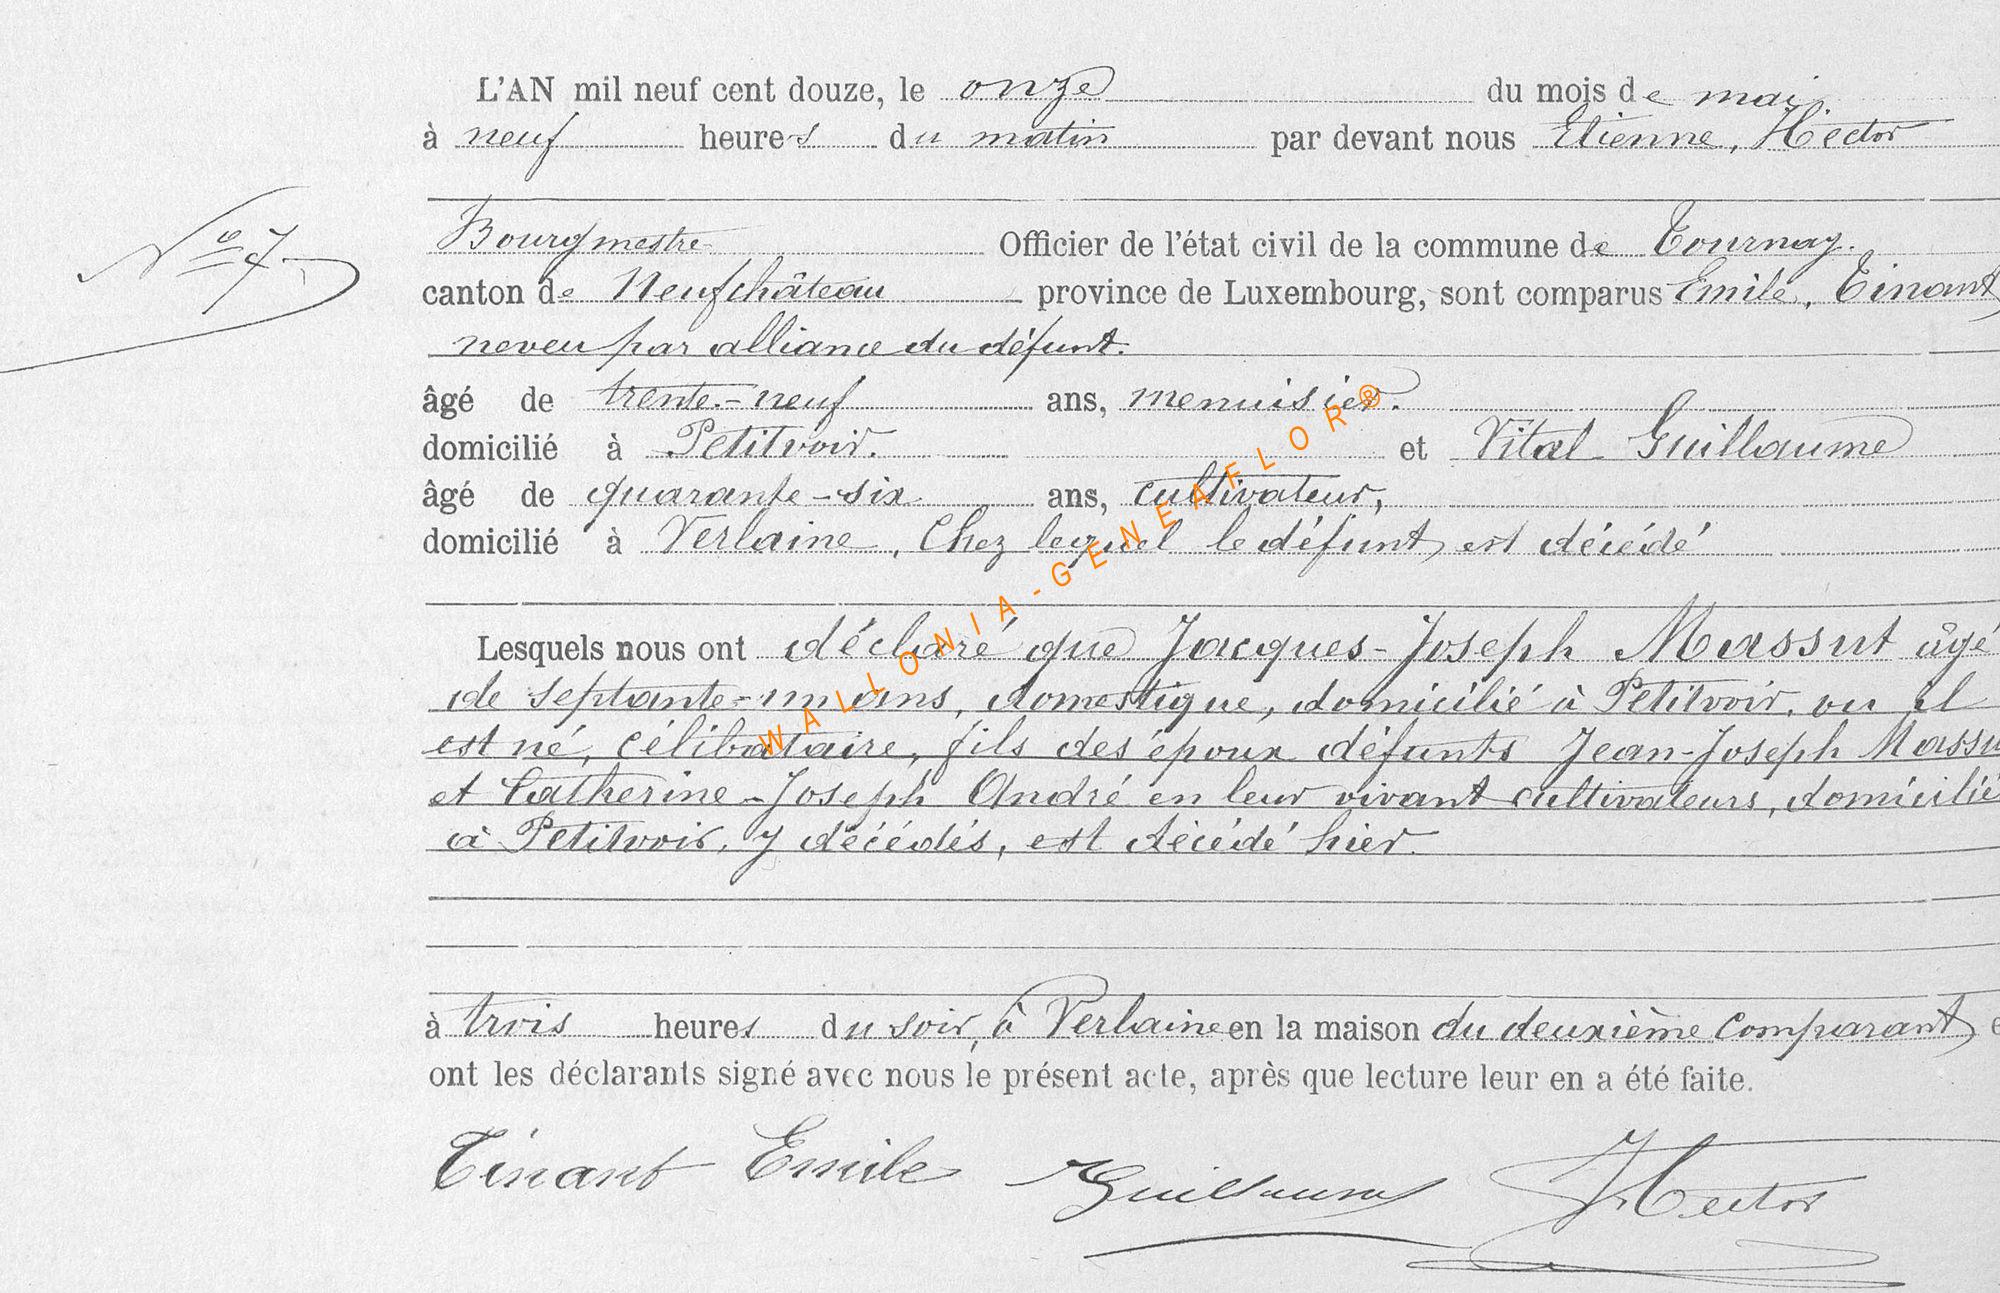 L'AN mil neuf cent douze, le onze du mois de mai.
à neuf heures du matin par devant nous Etienne, Hector
N° 7
Bourgmestre Officier de l'état civil de la commune de Tournay.
canton de Neufchâteau province de Luxembourg, sont comparus Emile, Tinant
neveu par alliance du défunt.
âgé de trente-neuf ans, menuisier.
domicilié à Petitvoir. et Vital Guillaume
âgé de quarante-six ans, cultivateur,
domicilié à Verlaine, Chez lequel le défunt est décédé
Lesquels nous ont déclaré que Jacques-Joseph Massut âgé
de septante-un ans, domestique, domicilié à Petitvoir, ou il
est né, célibataire, fils des époux défunts Jean-Joseph Massu
et Catherine-Joseph André en leur vivant cultivateurs, domicilié
à Petitvoir, y décédés, est décédé hier.
à trois heures du soir, à Verlaine en la maison du deuxième comparant e
ont les déclarants signé avec nous le présent acte, après que lecture leur en a été faite.
Tinant Emile Guillaume Hector
WALLONIA-GENEAFLOR®